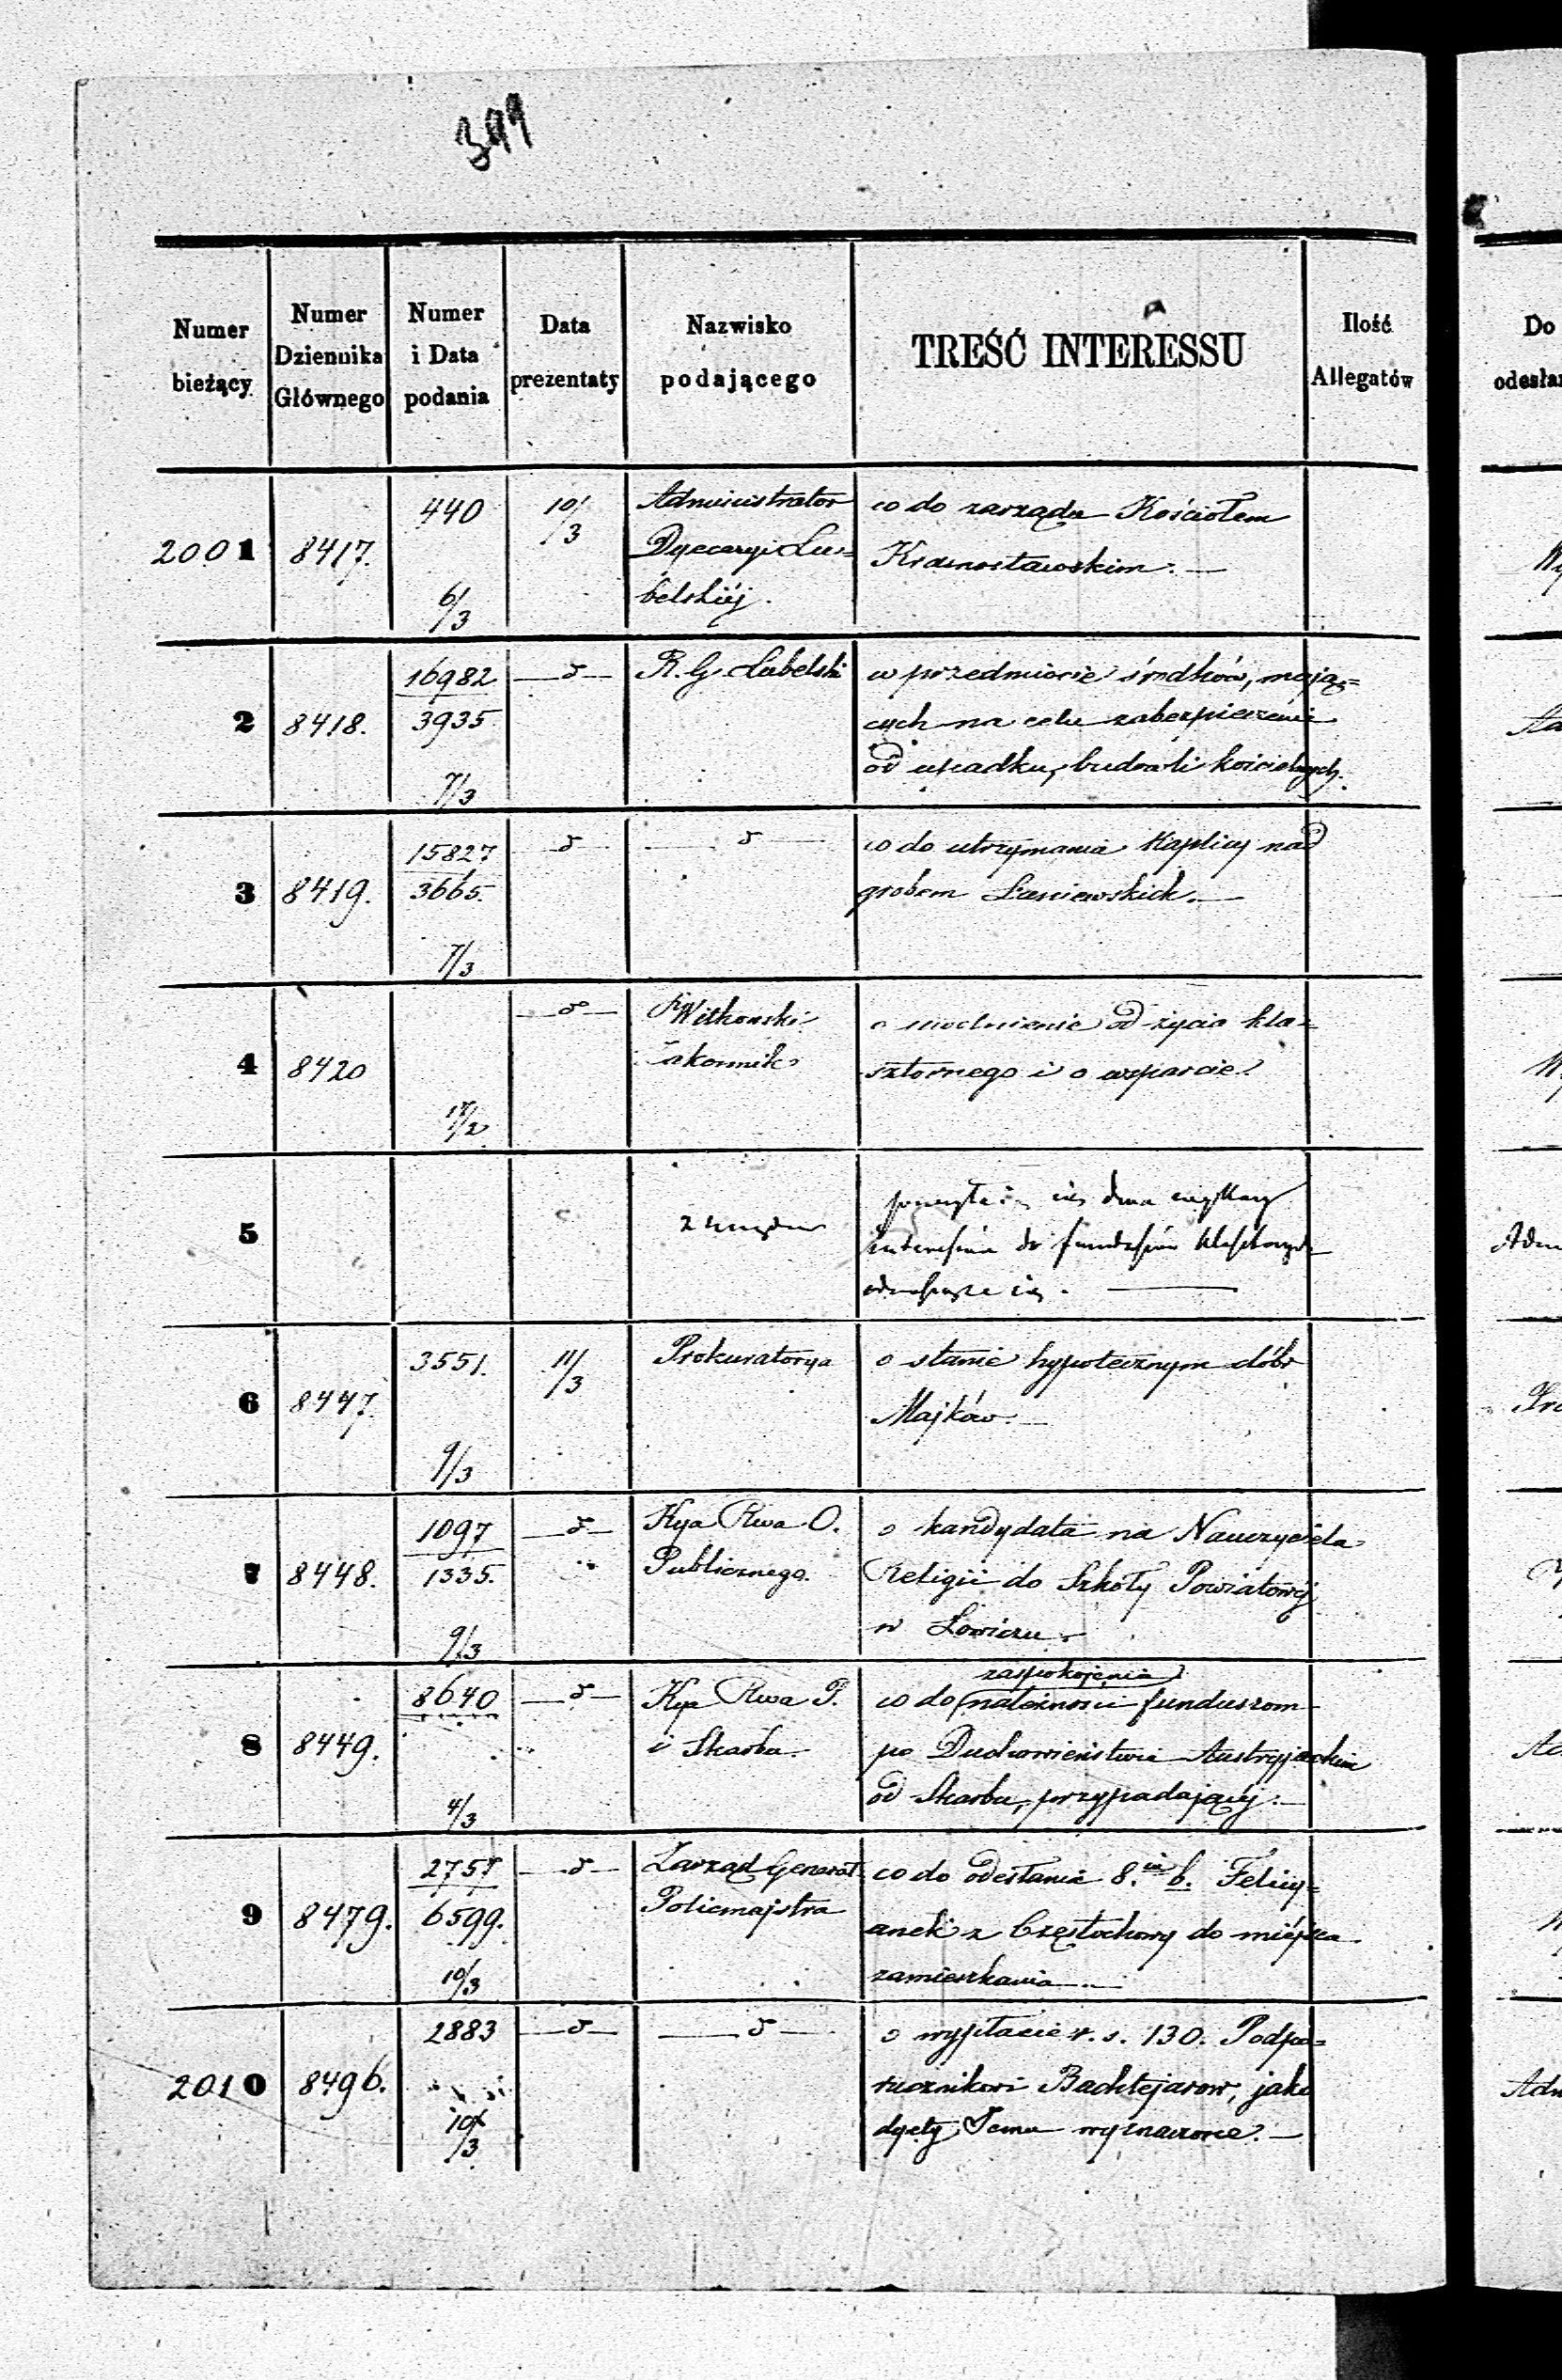 399
Numer bieżący
Numer Dziennika Głównego
Numer i Data podania
Data prezentaty
Nazwisko podającego
TREŚĆ INTERESSU
Ilość Allegatów
Do
2001 8417. 440 6/3 10/3
Administrator
Dyecezyi Lu=
belskiéj.
co do zarządu Kościołem
Krasnostawskim. —
2 8418. 16982 3935 7/3 — d —
R. G. Lubelski
w przedmiocie środków, mają=
cych na celu zabezpieczenie
od upadku, budowli kościelnych.
3 8419. 15827 3665. 7/3 — d — — d —
co do utrzymania Kaplicy nad
grobem Łaniewskich. —
4 8420 17/2 — d —
X Witkowski
Zakonnik
o uwolnienie od życia kla=
sztornego i o wsparcie.
5
z urzędu
dwa
do
6 8447. 3551. 9/3 11/3
Prokuratorya
o stanie hypotecznym dóbr
Majków. —
7 8448. 1097 1335. 9/3 — d —
Kya Rwa O.
Publicznego.
o kandydata na Nauczyciela
Religii do Szkoły Powiatowéj
w Łowiczu.
8 8449. 8640 4/3 — d —
Kya Rwa P.
i Skarbu.
zaspokojenia
co do należności funduszom
po Duchowieństwie Austryjackim
od Skarbu, przypadającéj. —
9 8479. 2757 6599. 10/3 — d —
Zarząd Generał
Policmajstra
co do odesłania 8.iu b. Felicy=
anek z Częstochowy do miéjsca
zamieszkania —
2010 8496. 2883 10/3 — d — — d —
o wypłacie r. s. 130. Podpo=
rucznikowi Bachtejarow, jako
dyety Temu wyznaczone. —